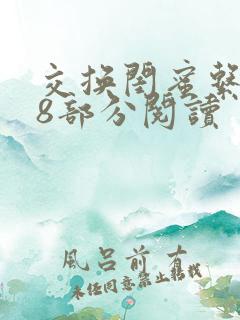 交换閨蜜繫
8部分閱讀
風呂前有
未任同意禁止轉載